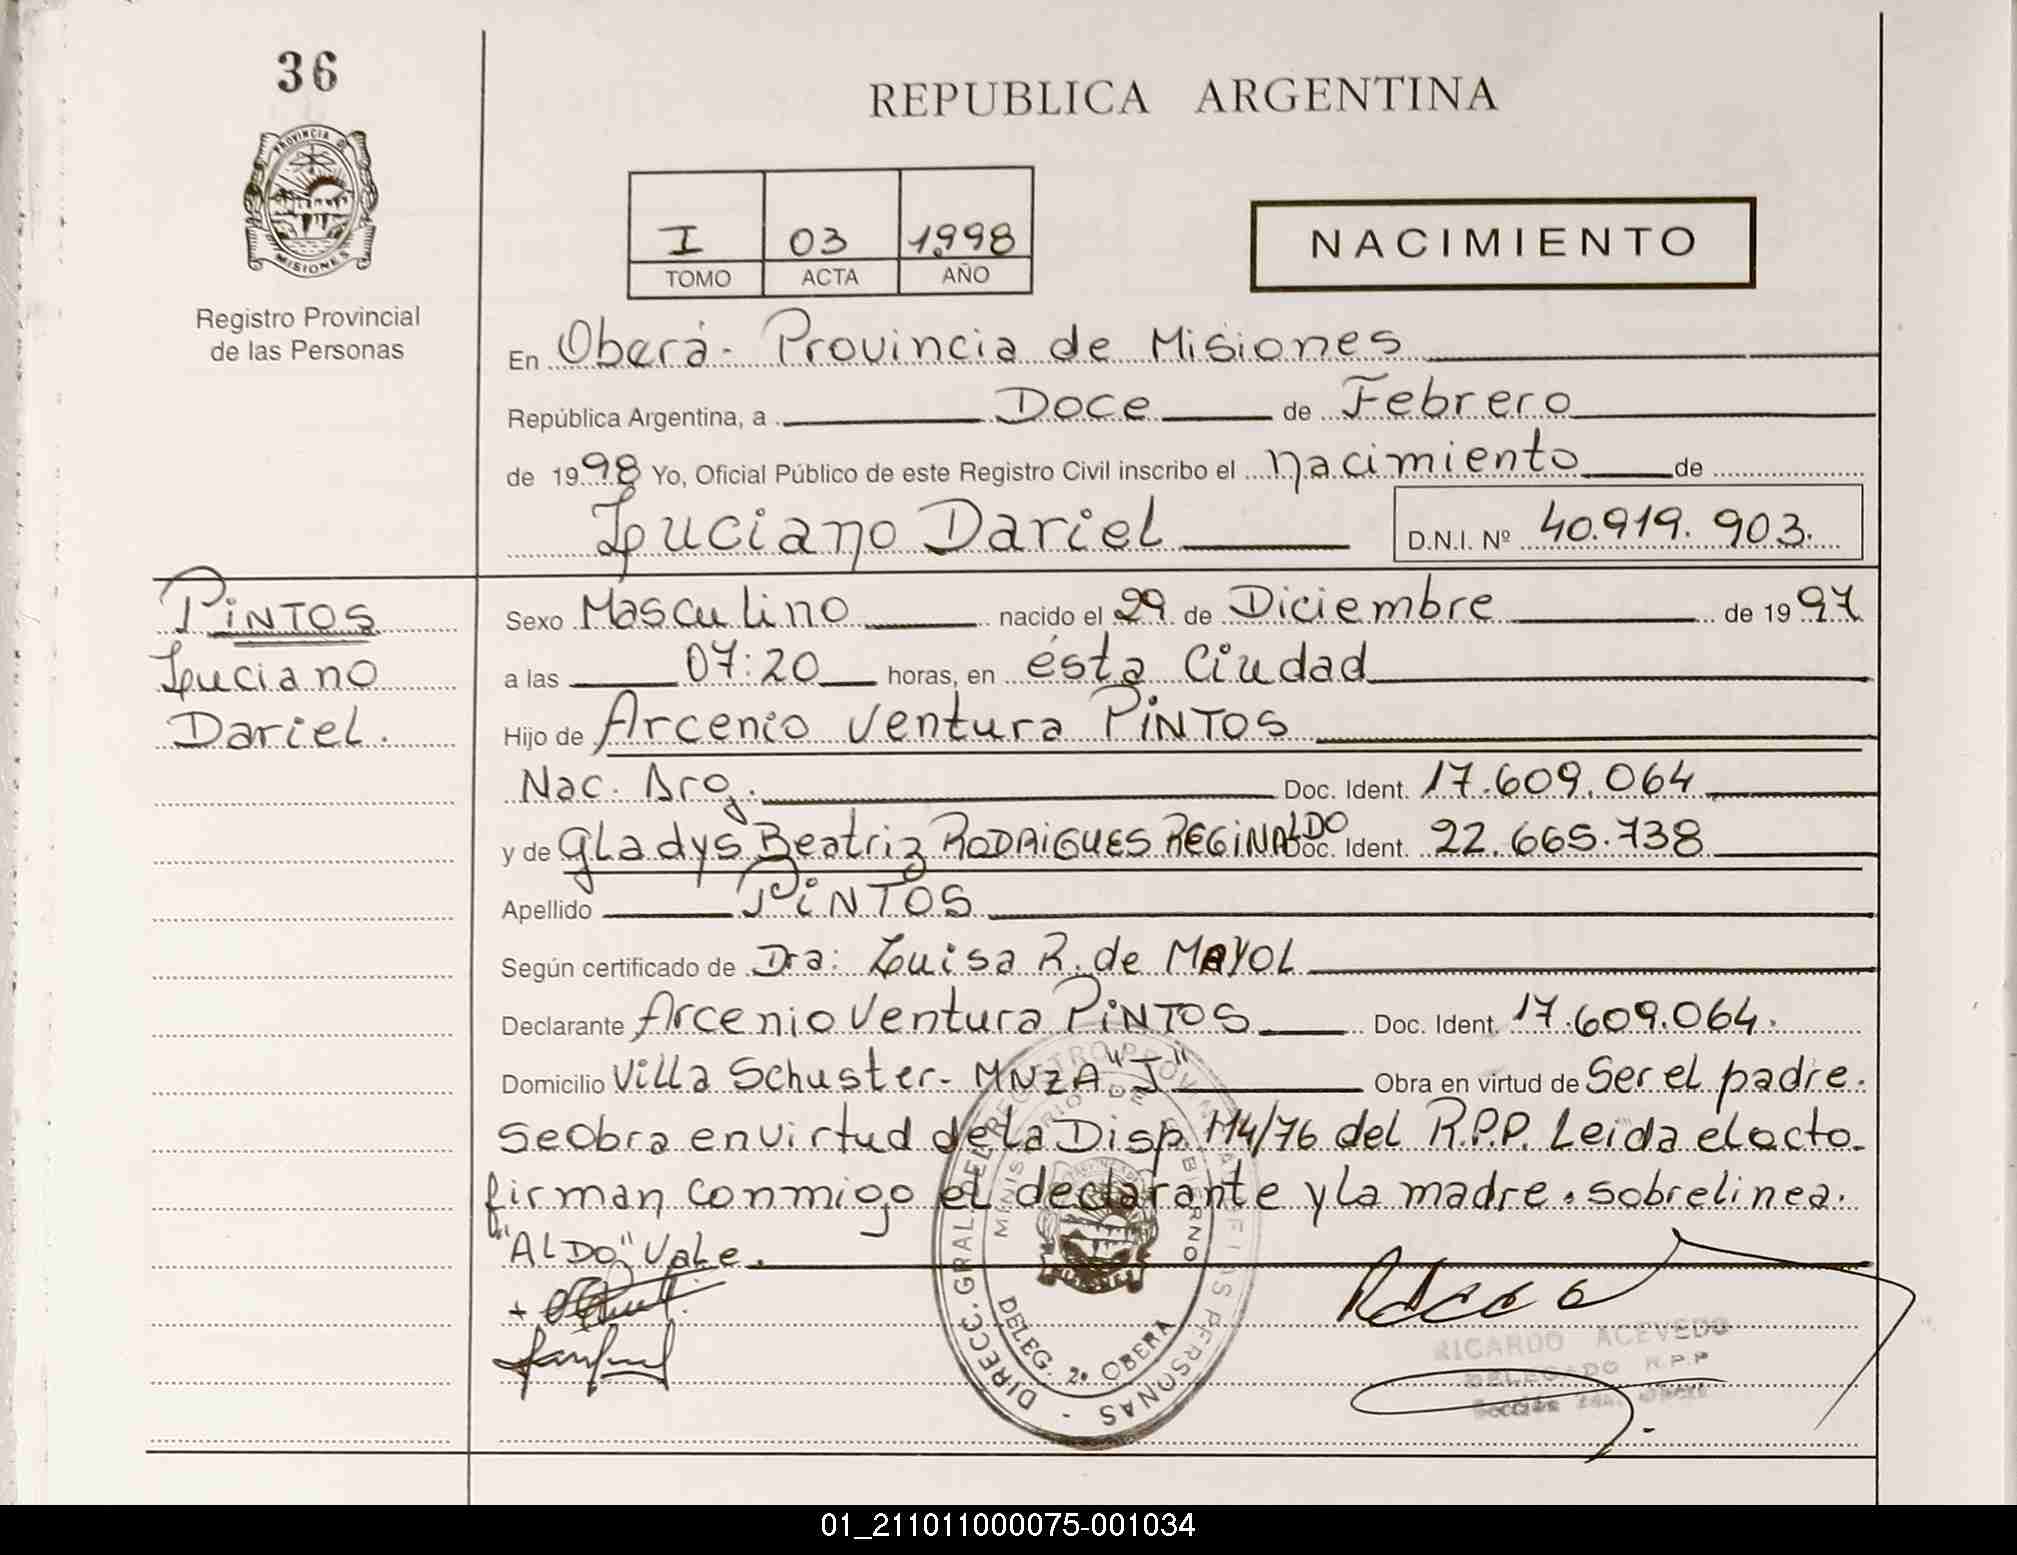 36
REPUBLICA ARGENTINA
PROVINCIA D
MISIONES
I 03 1998
TOMO ACTA AÑO
NACIMIENTO
Registro Provincial
de las Personas
En Oberá - Provincia de Misiones
República Argentina, a Doce de Febrero
de 1998 Yo, Oficial Público de este Registro Civil inscribo el nacimiento de
Luciano Dariel D.N.I. Nº 40.919.903.
PiNTOS
Luciano
Dariel.
Sexo Masculino nacido el 29 de Diciembre de 1997
a las 07:20 horas, en ésta Ciudad
Hijo de Arcenio Ventura PiNTOS
Nac. Arg. Doc. Ident. 17.609.064
y de Gladys Beatriz RODRiGUES REGiNALDO Doc. Ident. 22.665.738
Apellido PiNTOS
Según certificado de Dra: Luisa R. de MAYOL
Declarante Arcenio Ventura PiNTOS Doc. Ident. 17.609.064.
Domicilio Villa Schuster - MNZA "J" Obra en virtud de Ser el padre.
Se Obra en virtud de la Disp. 114/76 del R.P.P. Leida el acto.
firman conmigo el declarante y la madre. sobrelinea.
"ALDO" Vale.
DIRECC. GRAL. DEL REGISTRO PROVINCIAL DE LAS PERSONAS
MINISTERIO DE GOBIERNO
DELEG. 2º OBERA
MISIONES
RICARDO ACEVEDO
DELEGADO R.P.P
Sección 2da. Oberá
01_211011000075-001034